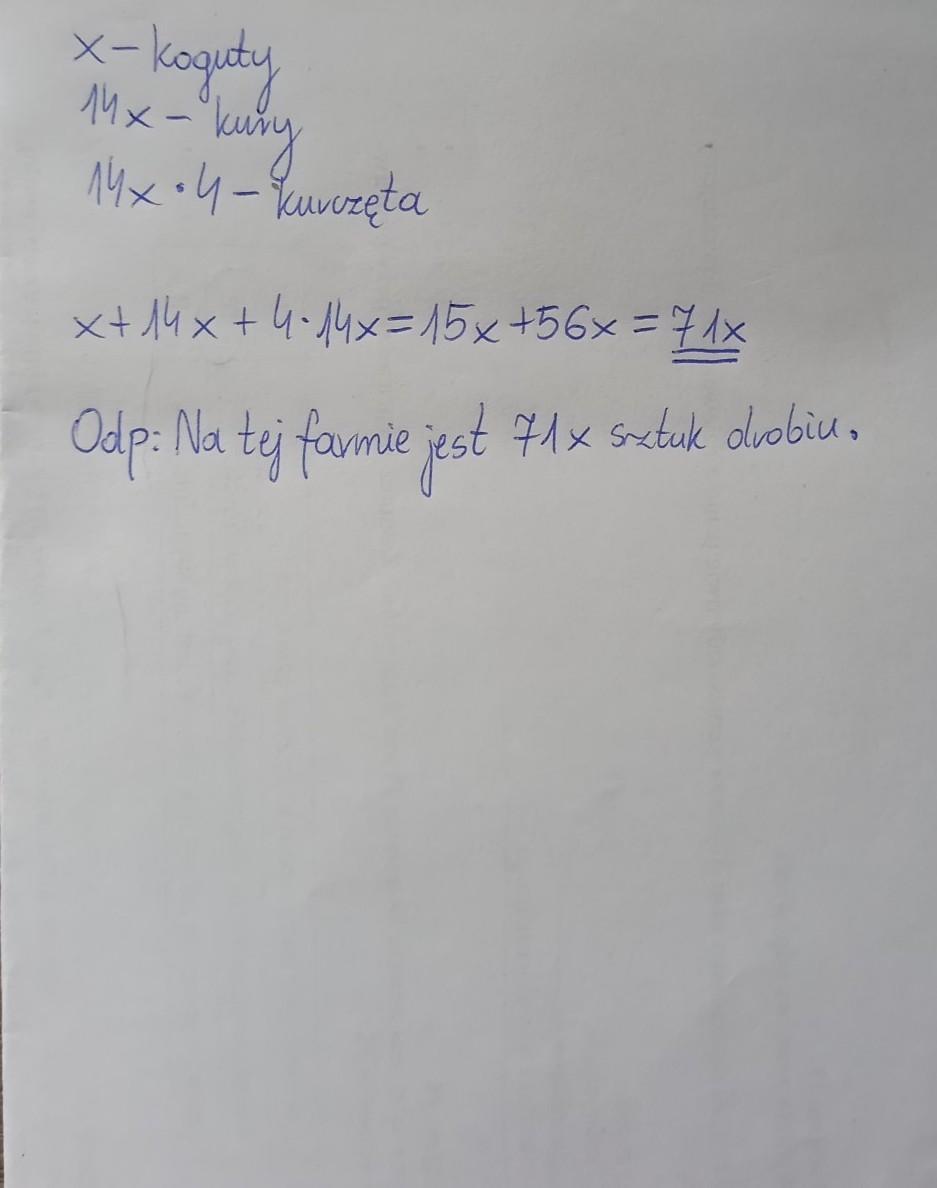 x – koguty
14x – kury
14x · 4 – kurczęta
x + 14x + 4 · 14x = 15x + 56x = 71x
Odp: Na tej farmie jest 71x sztuk drobiu.